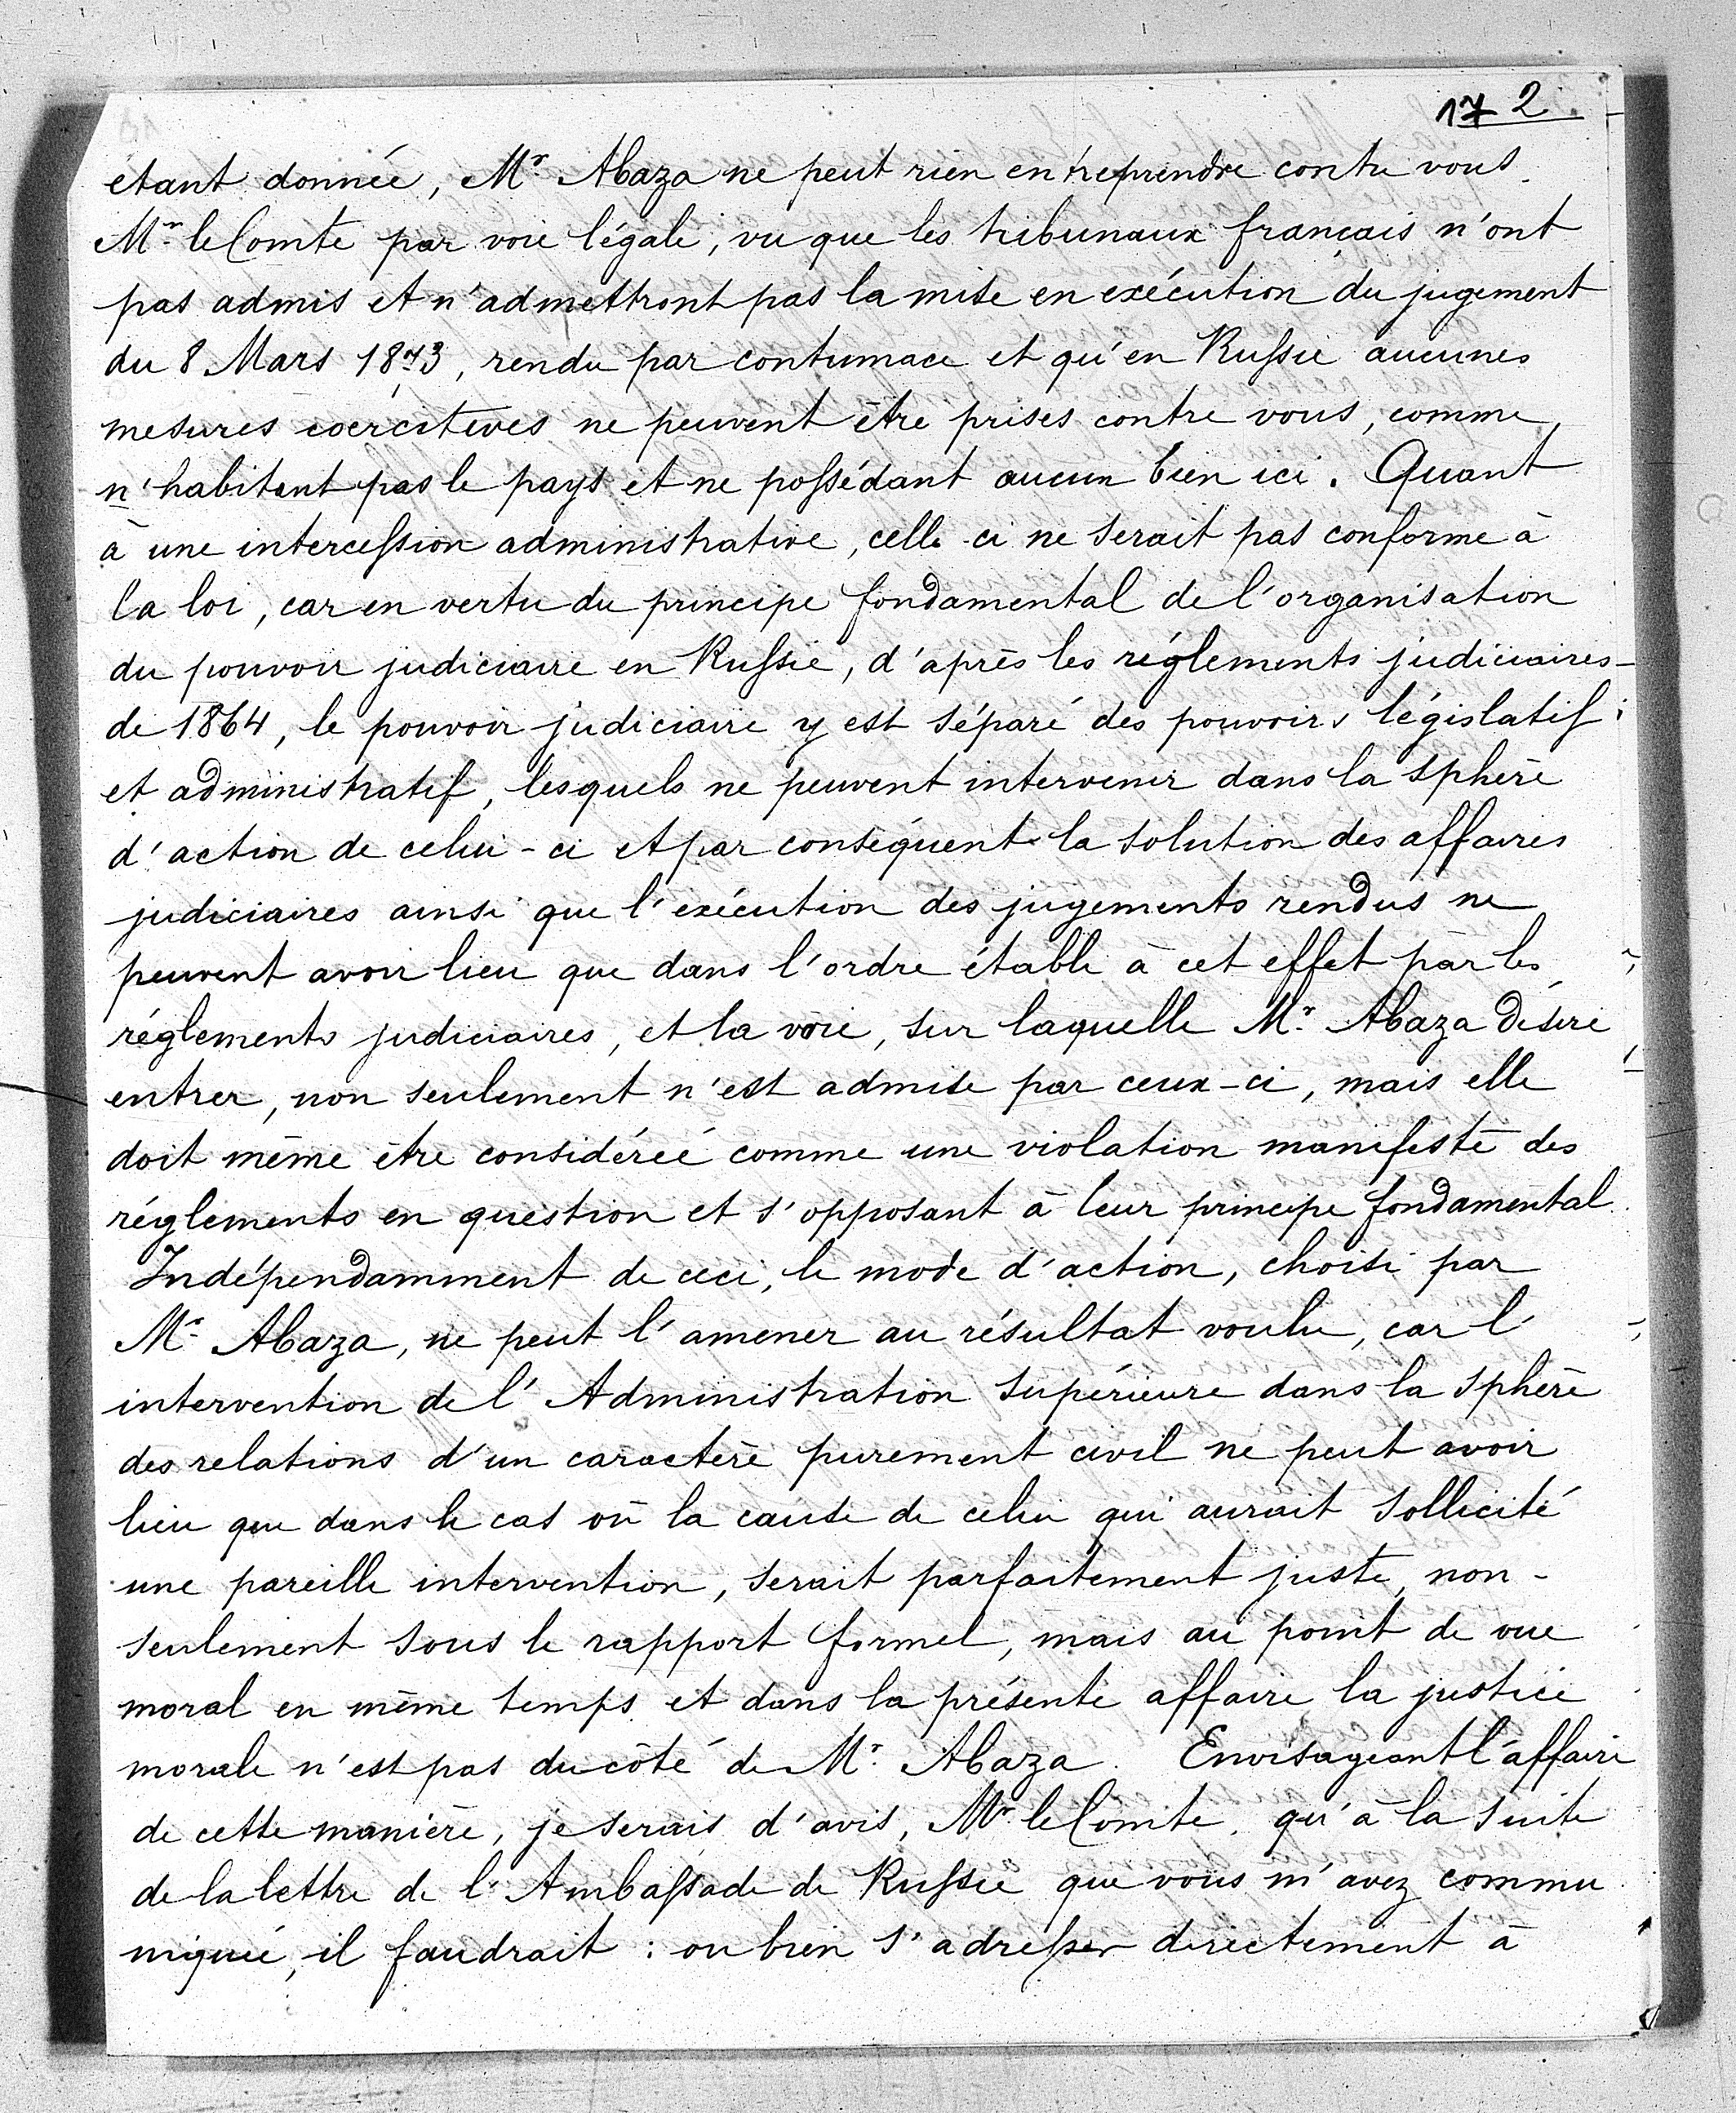 17 2.
étant donnée, Mr Abaza ne peut rien entreprendre contre vous.
Mr le Comte par voie légale, vu que les tribunaux français n'ont
pas admis et n'admettront pas la mise en exécution du jugement
du 8 Mars 1873, rendu par contumace et qu'en Russie aucunes
mesures coercitives ne peuvent être prises contre vous, comme
n'habitant pas le pays et ne possédant aucun bien ici. Quant
à une intercession administrative, celle-ci ne serait pas conforme à
la loi, car en vertu du principe fondamental de l'organisation
du pouvoir judiciaire en Russie, d'après les réglements judiciaires
de 1864, le pouvoir judiciaire y est séparé des pouvoirs législatif
et administratif, lesquels ne peuvent intervenir dans la sphère
d'action de celui-ci et par conséquent la solution des affaires
judiciaires ainsi que l'exécution des jugements rendus ne
peuvent avoir lieu que dans l'ordre établi à cet effet par les
réglements judiciaires, et la voie, sur laquelle Mr Abaza désire
entrer, non seulement n'est admise par ceux-ci, mais elle
doit même être considérée comme une violation manifeste des
réglements en question et s'opposant à leur principe fondamental.
Indépendamment de ceci, le mode d'action, choisi par
Mr Abaza, ne peut l'amener au résultat voulu, car l'
intervention de l'Administration supérieure dans la sphère
des relations d'un caractère purement civil ne peut avoir
lieu que dans le cas où la cause de celui qui aurait sollicité
une pareille intervention, serait parfaitement juste, non-
seulement sous le rapport formel, mais au point de vue
moral en même temps et dans la présente affaire la justice
morale n'est pas du côté de Mr Abaza. Envisageant l'affaire
de cette manière, je serais d'avis, Mr le Comte, qu'à la suite
de la lettre de l'Ambassade de Russie que vous m'avez commu
niquée, il faudrait : ou bien s'adresser directement à